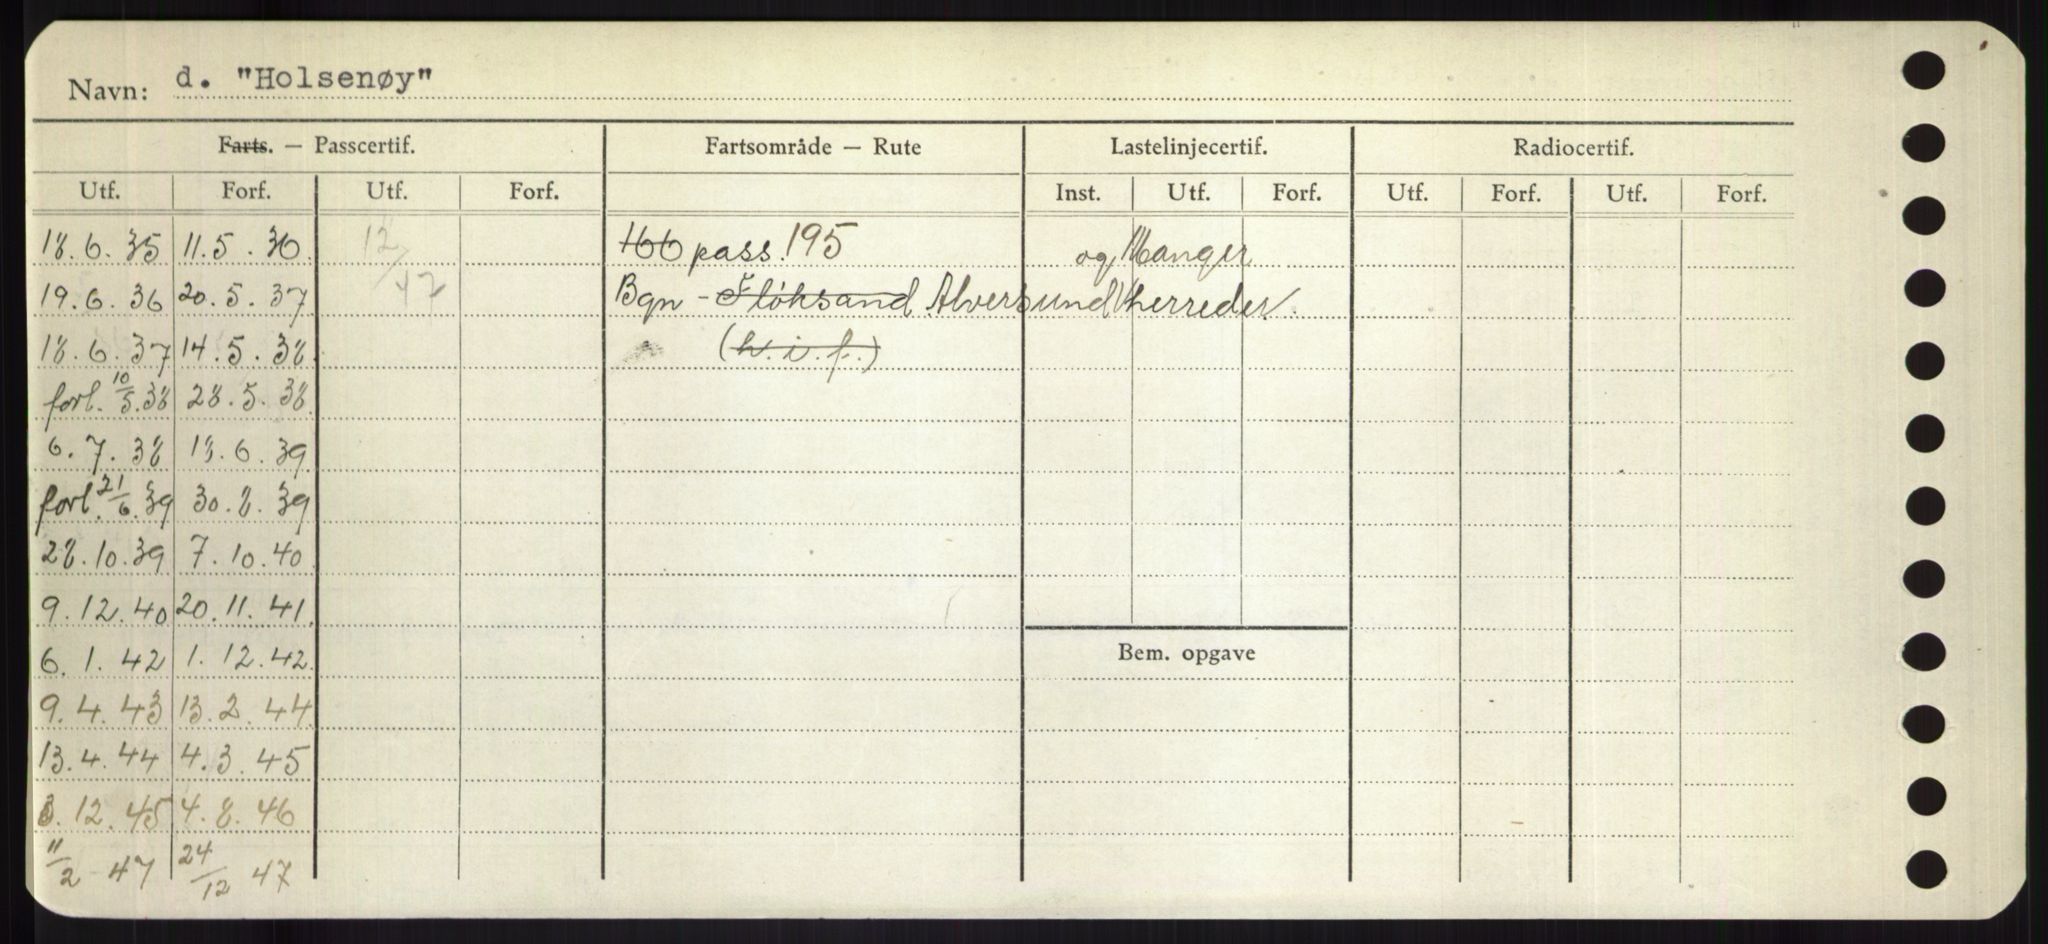 Navn: d. "Holsenøy"
Farts. — Passcertif. Fartsområde — Rute Lastelinjecertif. Radiocertif.
Utf. Forf. Utf. Forf. Inst. Utf. Forf. Utf. Forf. Utf. Forf.
18.6.35 11.5.36 12/47 166 pass. 195 og Manger
19.6.36 20.5.37 Bgn - Fløksand Alversund herreder.
18.6.37 14.5.38 (h.i.f.)
forl. 10/5.38 28.5.38
6.7.38 18.6.39
forl. 21/6.39 30.8.39
28.10.39 7.10.40
9.12.40 20.11.41
6.1.42 1.12.42 Bem. opgave
9.4.43 13.2.44
13.4.44 4.3.45
3.12.45 4.8.46
11/2 - 47 24/12 47